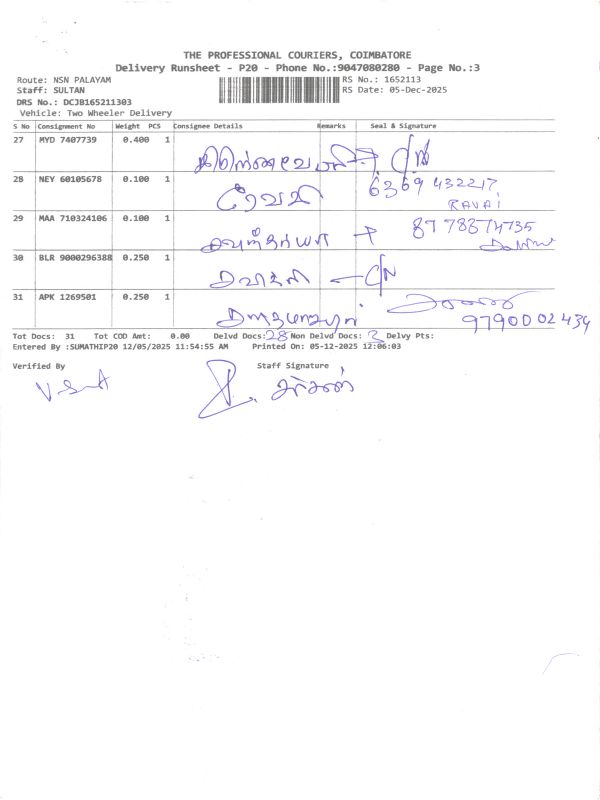 THE PROFESSIONAL COURIERS, COIMBATORE
Delivery Runsheet - P20 - Phone No.:9047080280 - Page No.:3
Route: NSN PALAYAM RS No.: 1652113
Staff: SULTAN RS Date: 05-Dec-2025
DRS No.: DCJB165211303
Vehicle: Two Wheeler Delivery
S No Consignment No Weight PCS Consignee Details Remarks Seal & Signature
27 MYD 7407739 0.400 1
28 NEY 60105678 0.100 1 ரேவதி 6369 432217
RAVAI
29 MAA 710324106 0.100 1
30 BLR 9000296388 0.250 1
31 APK 1269501 0.250 1
9790002434
Tot Docs: 31 Tot COD Amt: 0.00 Delvd Docs: 28 Non Delvd Docs: 3 Delvy Pts:
Entered By :SUMATHIP20 12/05/2025 11:54:55 AM Printed On: 05-12-2025 12:06:03
Verified By Staff Signature